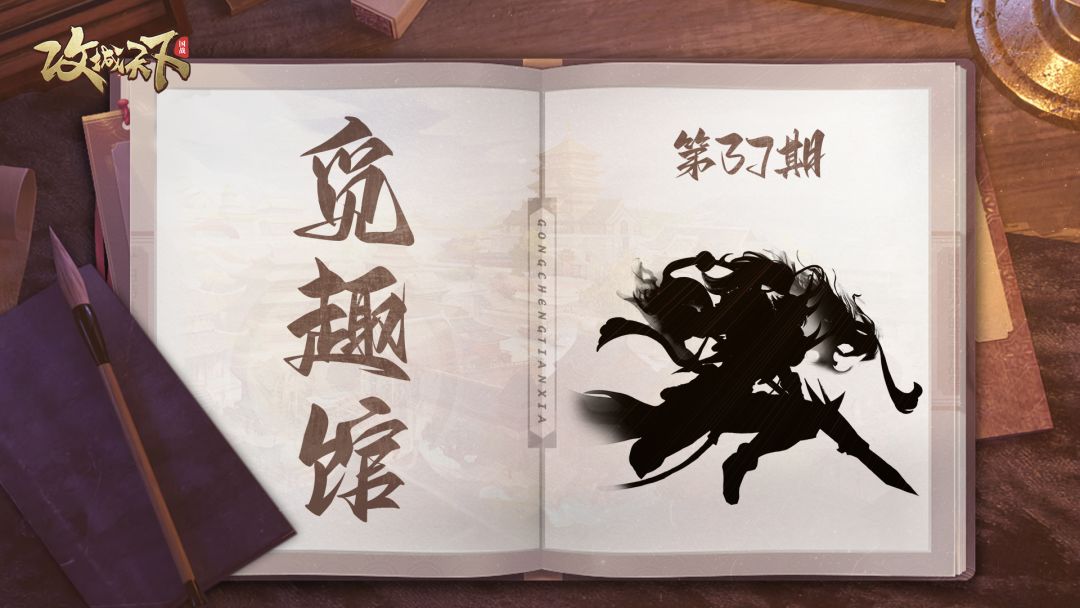 攻城天下
国战
觅趣馆
第57期
GONGCHENGTIANXIA